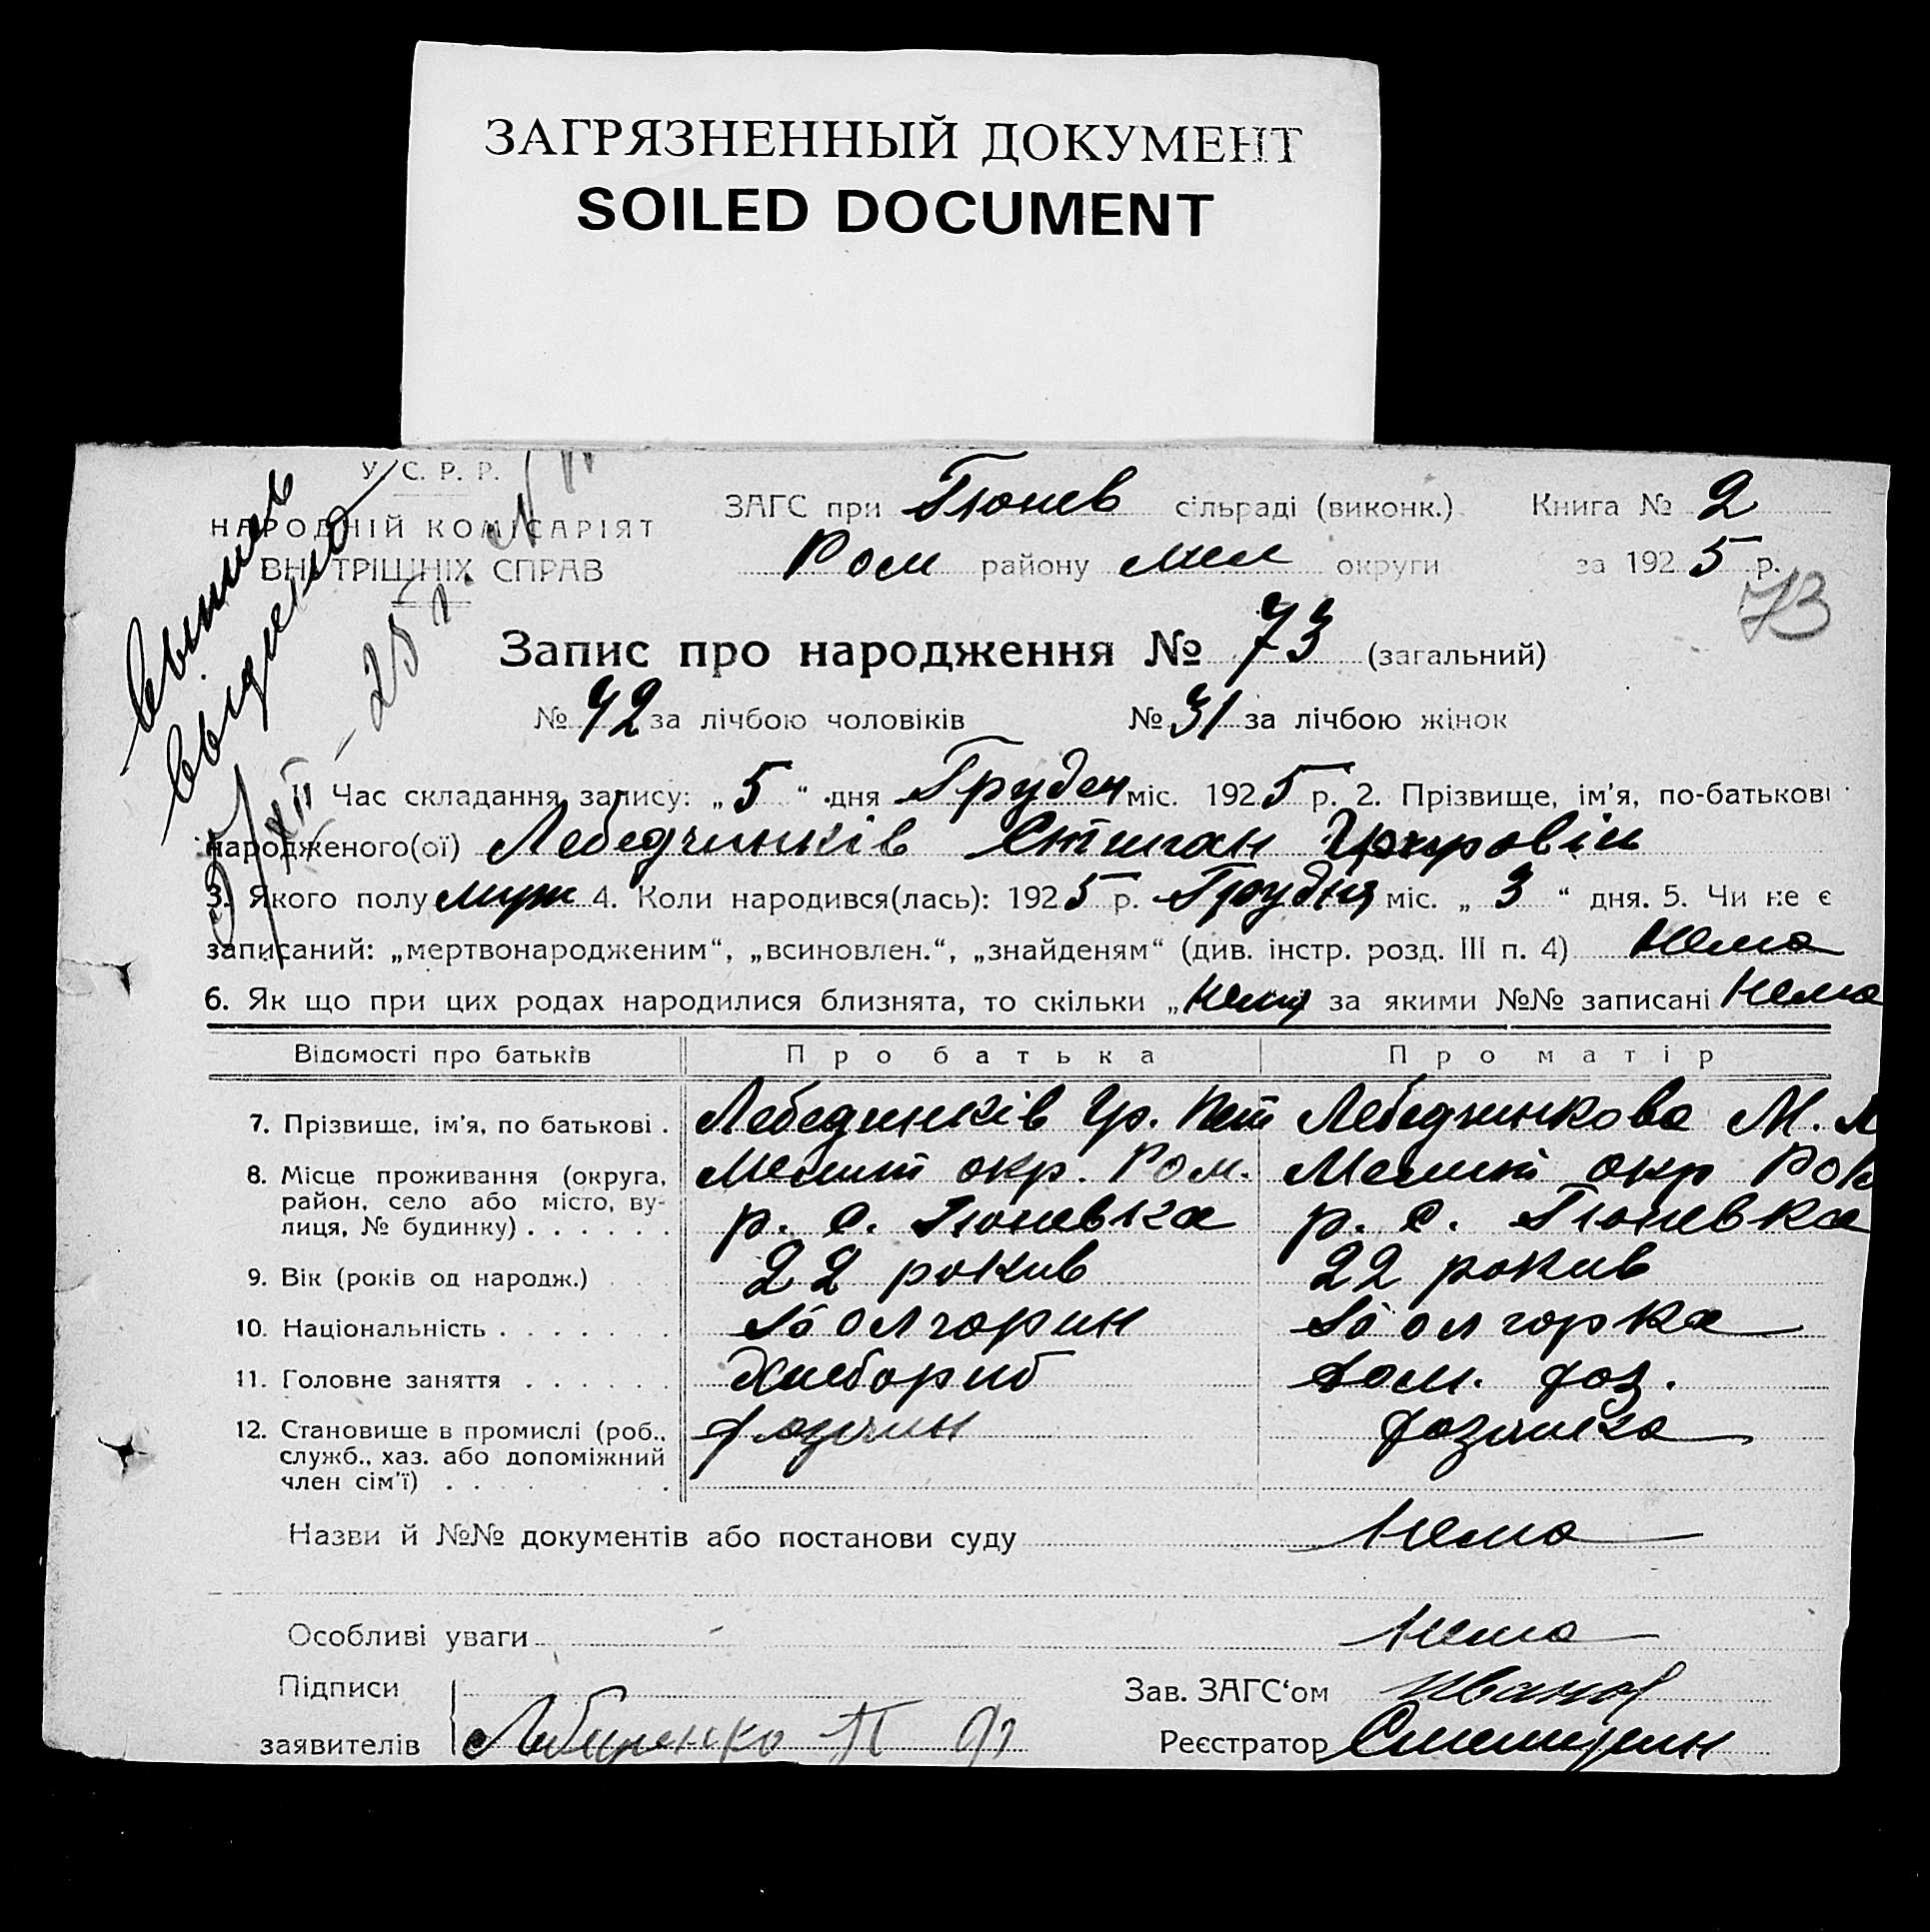 ЗАГРЯЗНЕННЫЙ ДОКУМЕНТ
SOILED DOCUMENT
У. С. Р. Р.
НАРОДНІЙ КОМІСАРІЯТ
ВНУТРІШНІХ СПРАВ
ЗАГС при Гюнев сільраді (виконк.)
Ром району мел округи
Книга № 2
за 1925 р.
73
Запис про народження № 73 (загальний)
№ 42 за лічбою чоловіків № 31 за лічбою жінок
1. Час складання запису: „5“ дня Грудня міс. 1925 р. 2. Прізвище, ім'я, по-батькові
народженого(ої) Лебедчинків
3. Якого полу муж 4. Коли народився(лась): 1925 р. Грудня міс. „3“ дня. 5. Чи не є
записаний: „мертвонародженим“, „всиновлен.“, „знайденям“ (див. інстр. розд. III п. 4) нема
6. Як що при цих родах народилися близнята, то скільки „нема за якими №№ записані нема
Відомості про батьків Про батька Про матір
7. Прізвище, ім'я, по батькові . Лебедчинків Гр. Пет Лебедчинкова М.
8. Місце проживання (округа, Мелит окр. Ром. Мелит окр Ром
район, село або місто, ву- р. с. Гюневка р. с. Гюневка
лиця, № будинку) . . . . . .
9. Вік (років од народж.) 22 рокив 22 рокив
10. Національність . . . . . . . болгорин болгорка
11. Головне заняття . . . . . . Хлебориб дом. хоз.
12. Становище в промислі (роб., хозяин хозяика
служб., хаз. або допоміжний
член сім'ї) . . . . . . .
Назви й №№ документів або постанови суду нема
Особливі уваги нема
Підписи Зав. ЗАГС'ом Иванов
заявителів Реєстратор